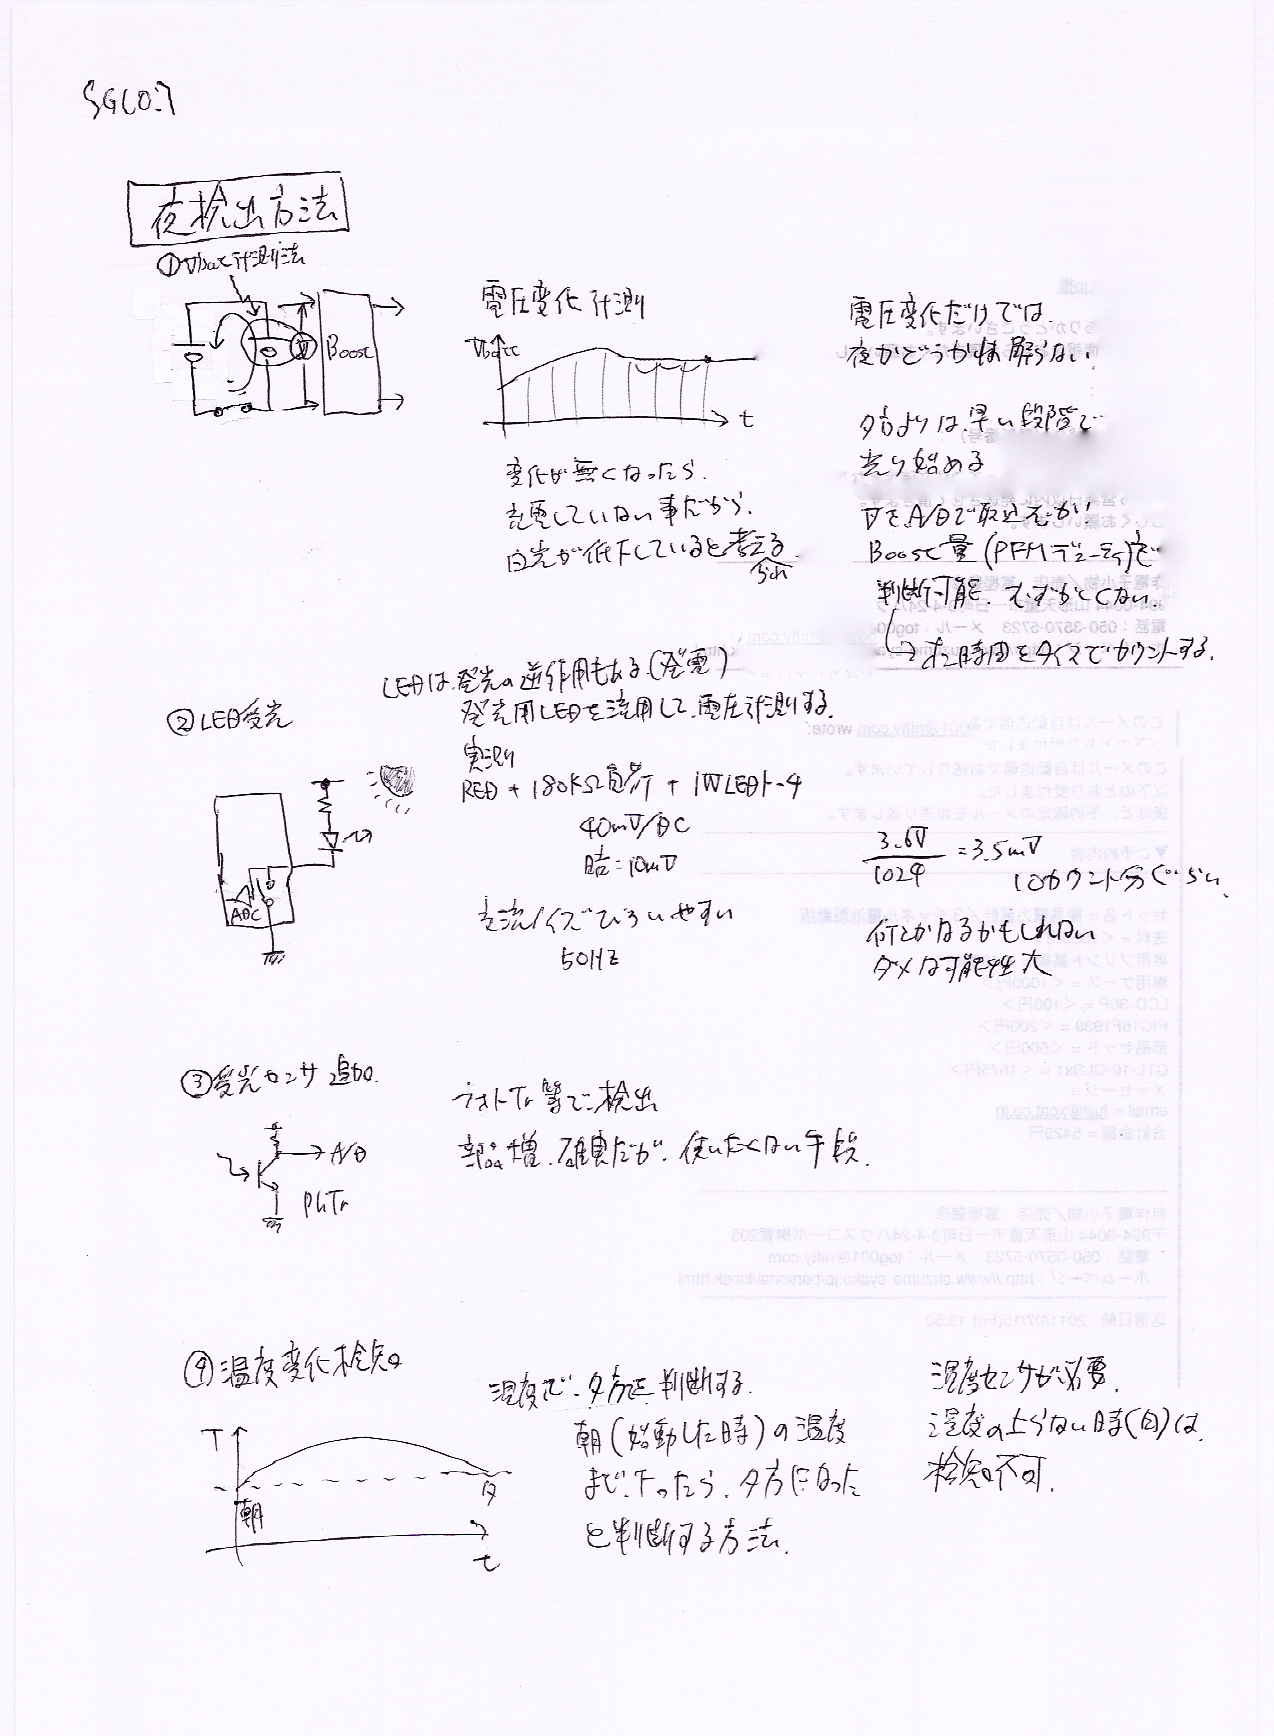 夜検出方法
①Vbatt計測法
Boost
電圧変化計測
Vbatt
t
変化が無くなったら、
充電していない事だから、
日光が低下していると考える
られ
電圧変化だけでは、
夜かどうかは解らない。
夕方よりは、早い段階で
光り始める
VをA/Dで取込むが、
Boost量(PFMデューティ)で
判断可能、むずかしくない。
時間をタイマでカウントする。
②LED受光
LEDは、発光の逆作用もある(発電)
発光用LEDを流用して、電圧計測する。
実測
RED + 180kΩ負荷 + 1W LEDトーチ
40mV/DC
暗:10mV
交流ノイズひろいやすい
50Hz
ADC
3.6V
1024
=3.5mV
10カウント分ぐらい、
何とかなるかもしれない
ダメな可能性大
③受光センサ追加
フォトTr等で検出
部品増、確実だが、使いたくない手段。
A/D
PhTr
④温度変化検知
T
朝
夕
t
温度で、夕方を判断する。
朝(始動した時)の温度
まで下ったら、夕方になった
と判断する方法。
温度センサが必要。
温度の上らない時(日)は、
検知不可。